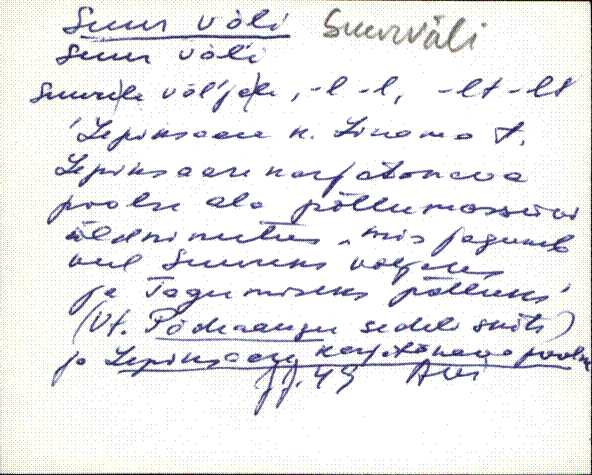 Suur väli Suurväli
Suur väl'i
Suurele väl'jale, -l -l, -lt -lt
'Lepiksaare k. Linama t.
Lepiksaare karjatanava
poolse ala põllumassiivi
üldnimetus, mis jaguneb
veel Suureks väljaks
ja Tagumiseks põlluks'
(Vt. Põdraangu sedeli skits)
ja Lepiksaare karjatänava poolne
49